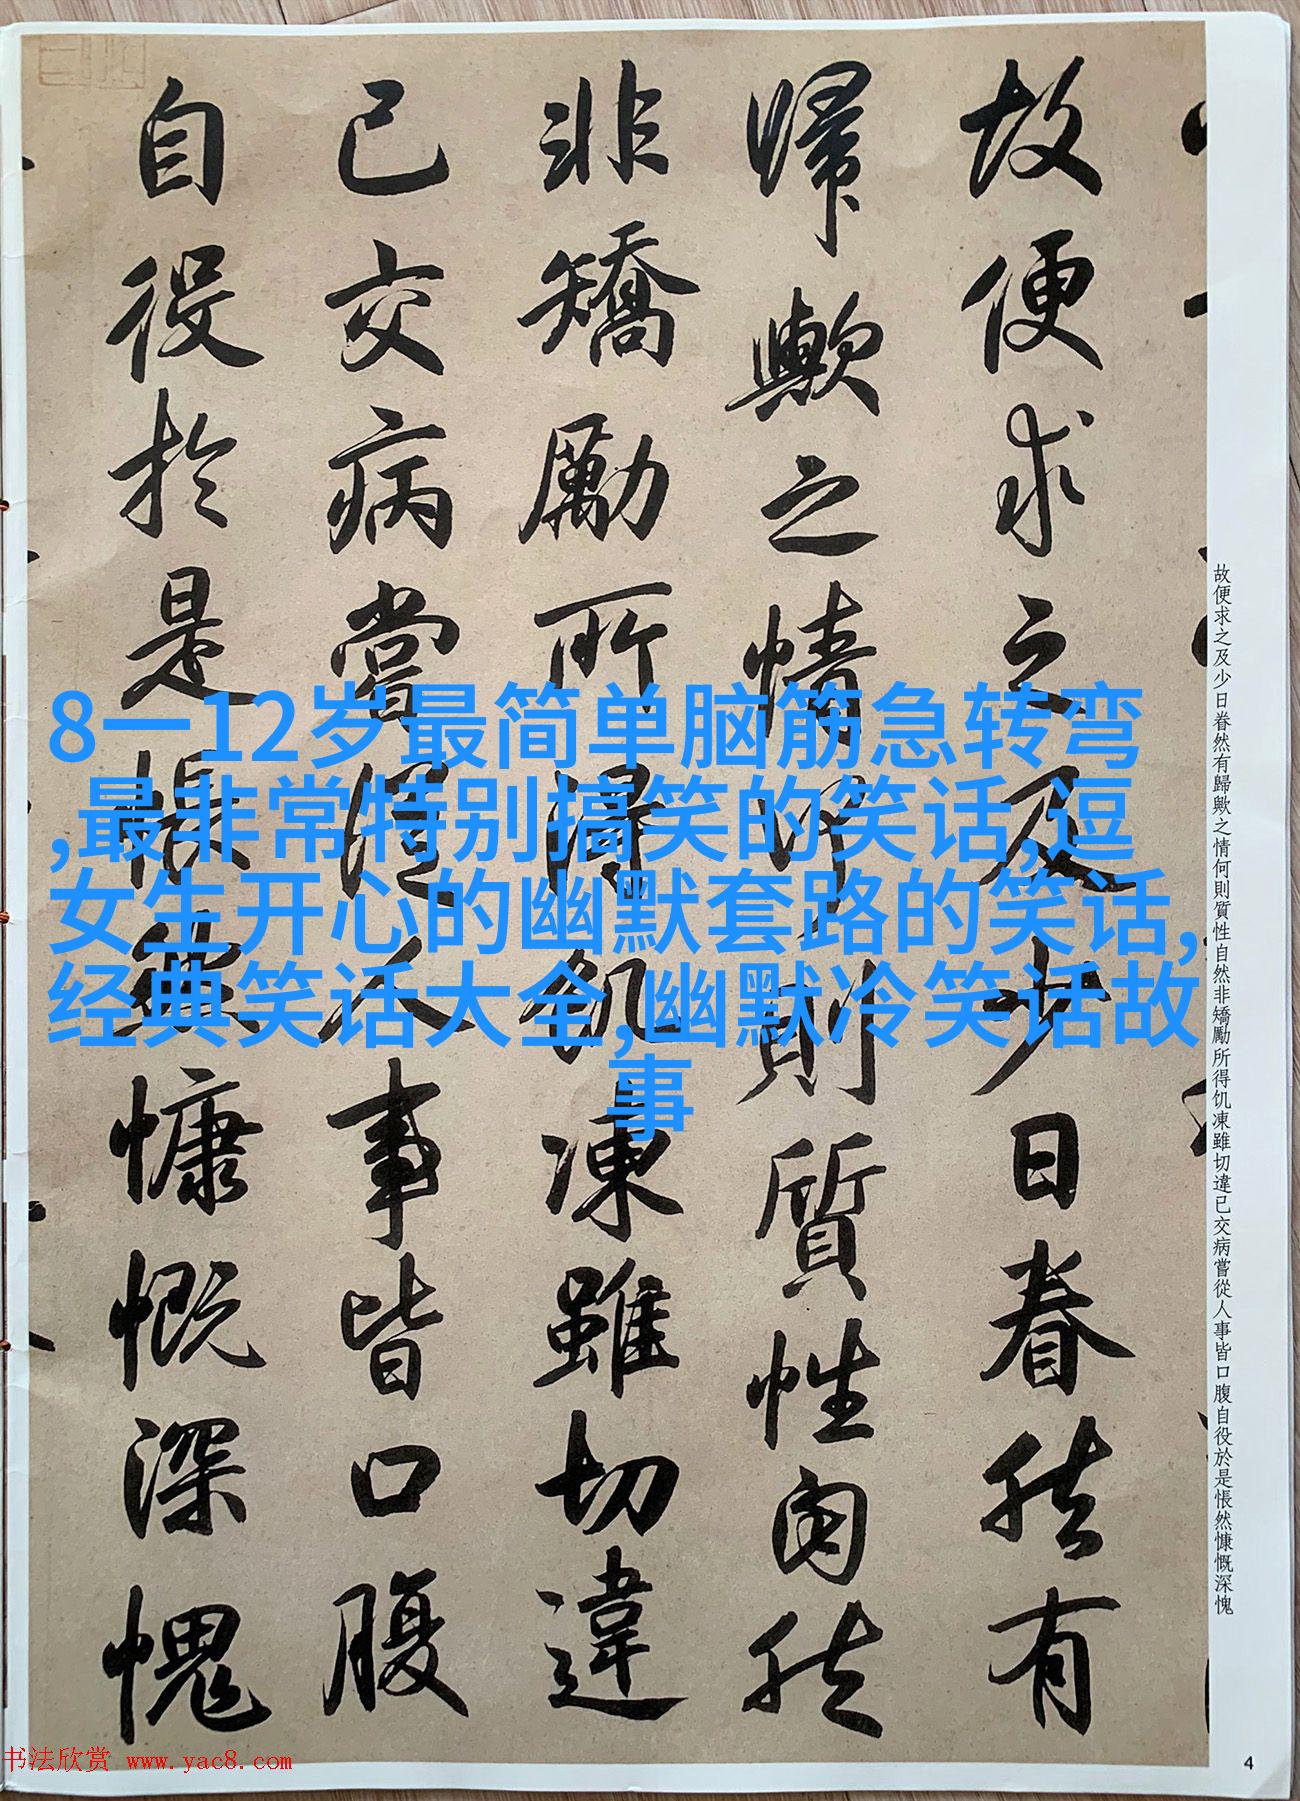 故便求之及少日眷然有
歸歟之情何則質性自然
非矯勵所得飢凍雖切違
已交病嘗從人事皆口腹
自役於是悵然慷慨深愧
故便求之及少日眷然有歸歟之情何則質性自然非矯勵所得饥凍雖切違已交病嘗從人事皆口腹自役於是悵然慷慨深愧
8一12岁最简单脑筋急转弯
,最非常特别搞笑的笑话,逗
女生开心的幽默套路的笑话,
经典笑话大全,幽默冷笑话故
事
书法欣赏 www.yac8.com
4